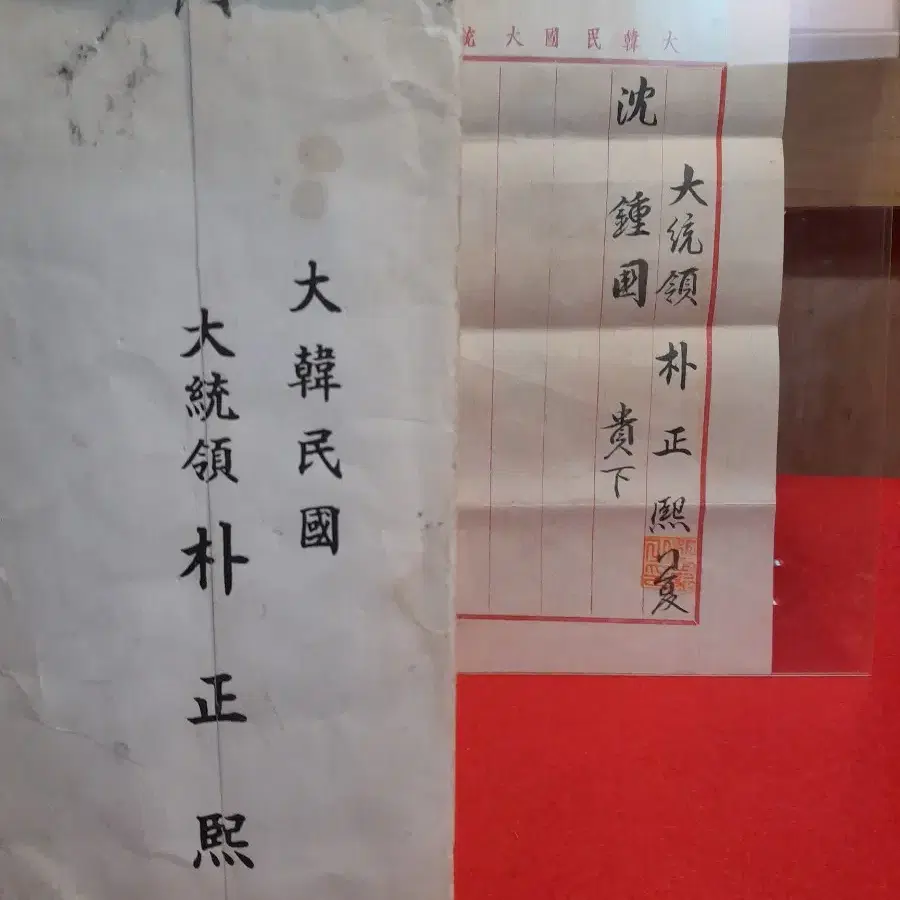 大韓民國大統
大統領 朴正熙
沈鍾國 貴下
大韓民國
大統領 朴正熙